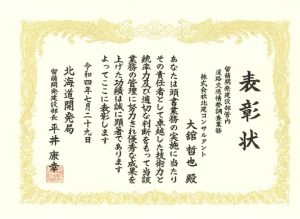 表彰状
留萌開発建設部管内
道路交通情勢調査業務
株式会社北建コンサルタント
大舘 哲也 殿
あなたは頭書業務の実施に当たり
その責任者として卓越した技術力と
統率力及び適切な判断をもって当該
業務の管理に努力され優秀な成果を
上げた功績は誠に顕著であります
よってここに表彰します
令和四年七月二十九日
北海道開発局
留萌開発建設部長 平井 康幸